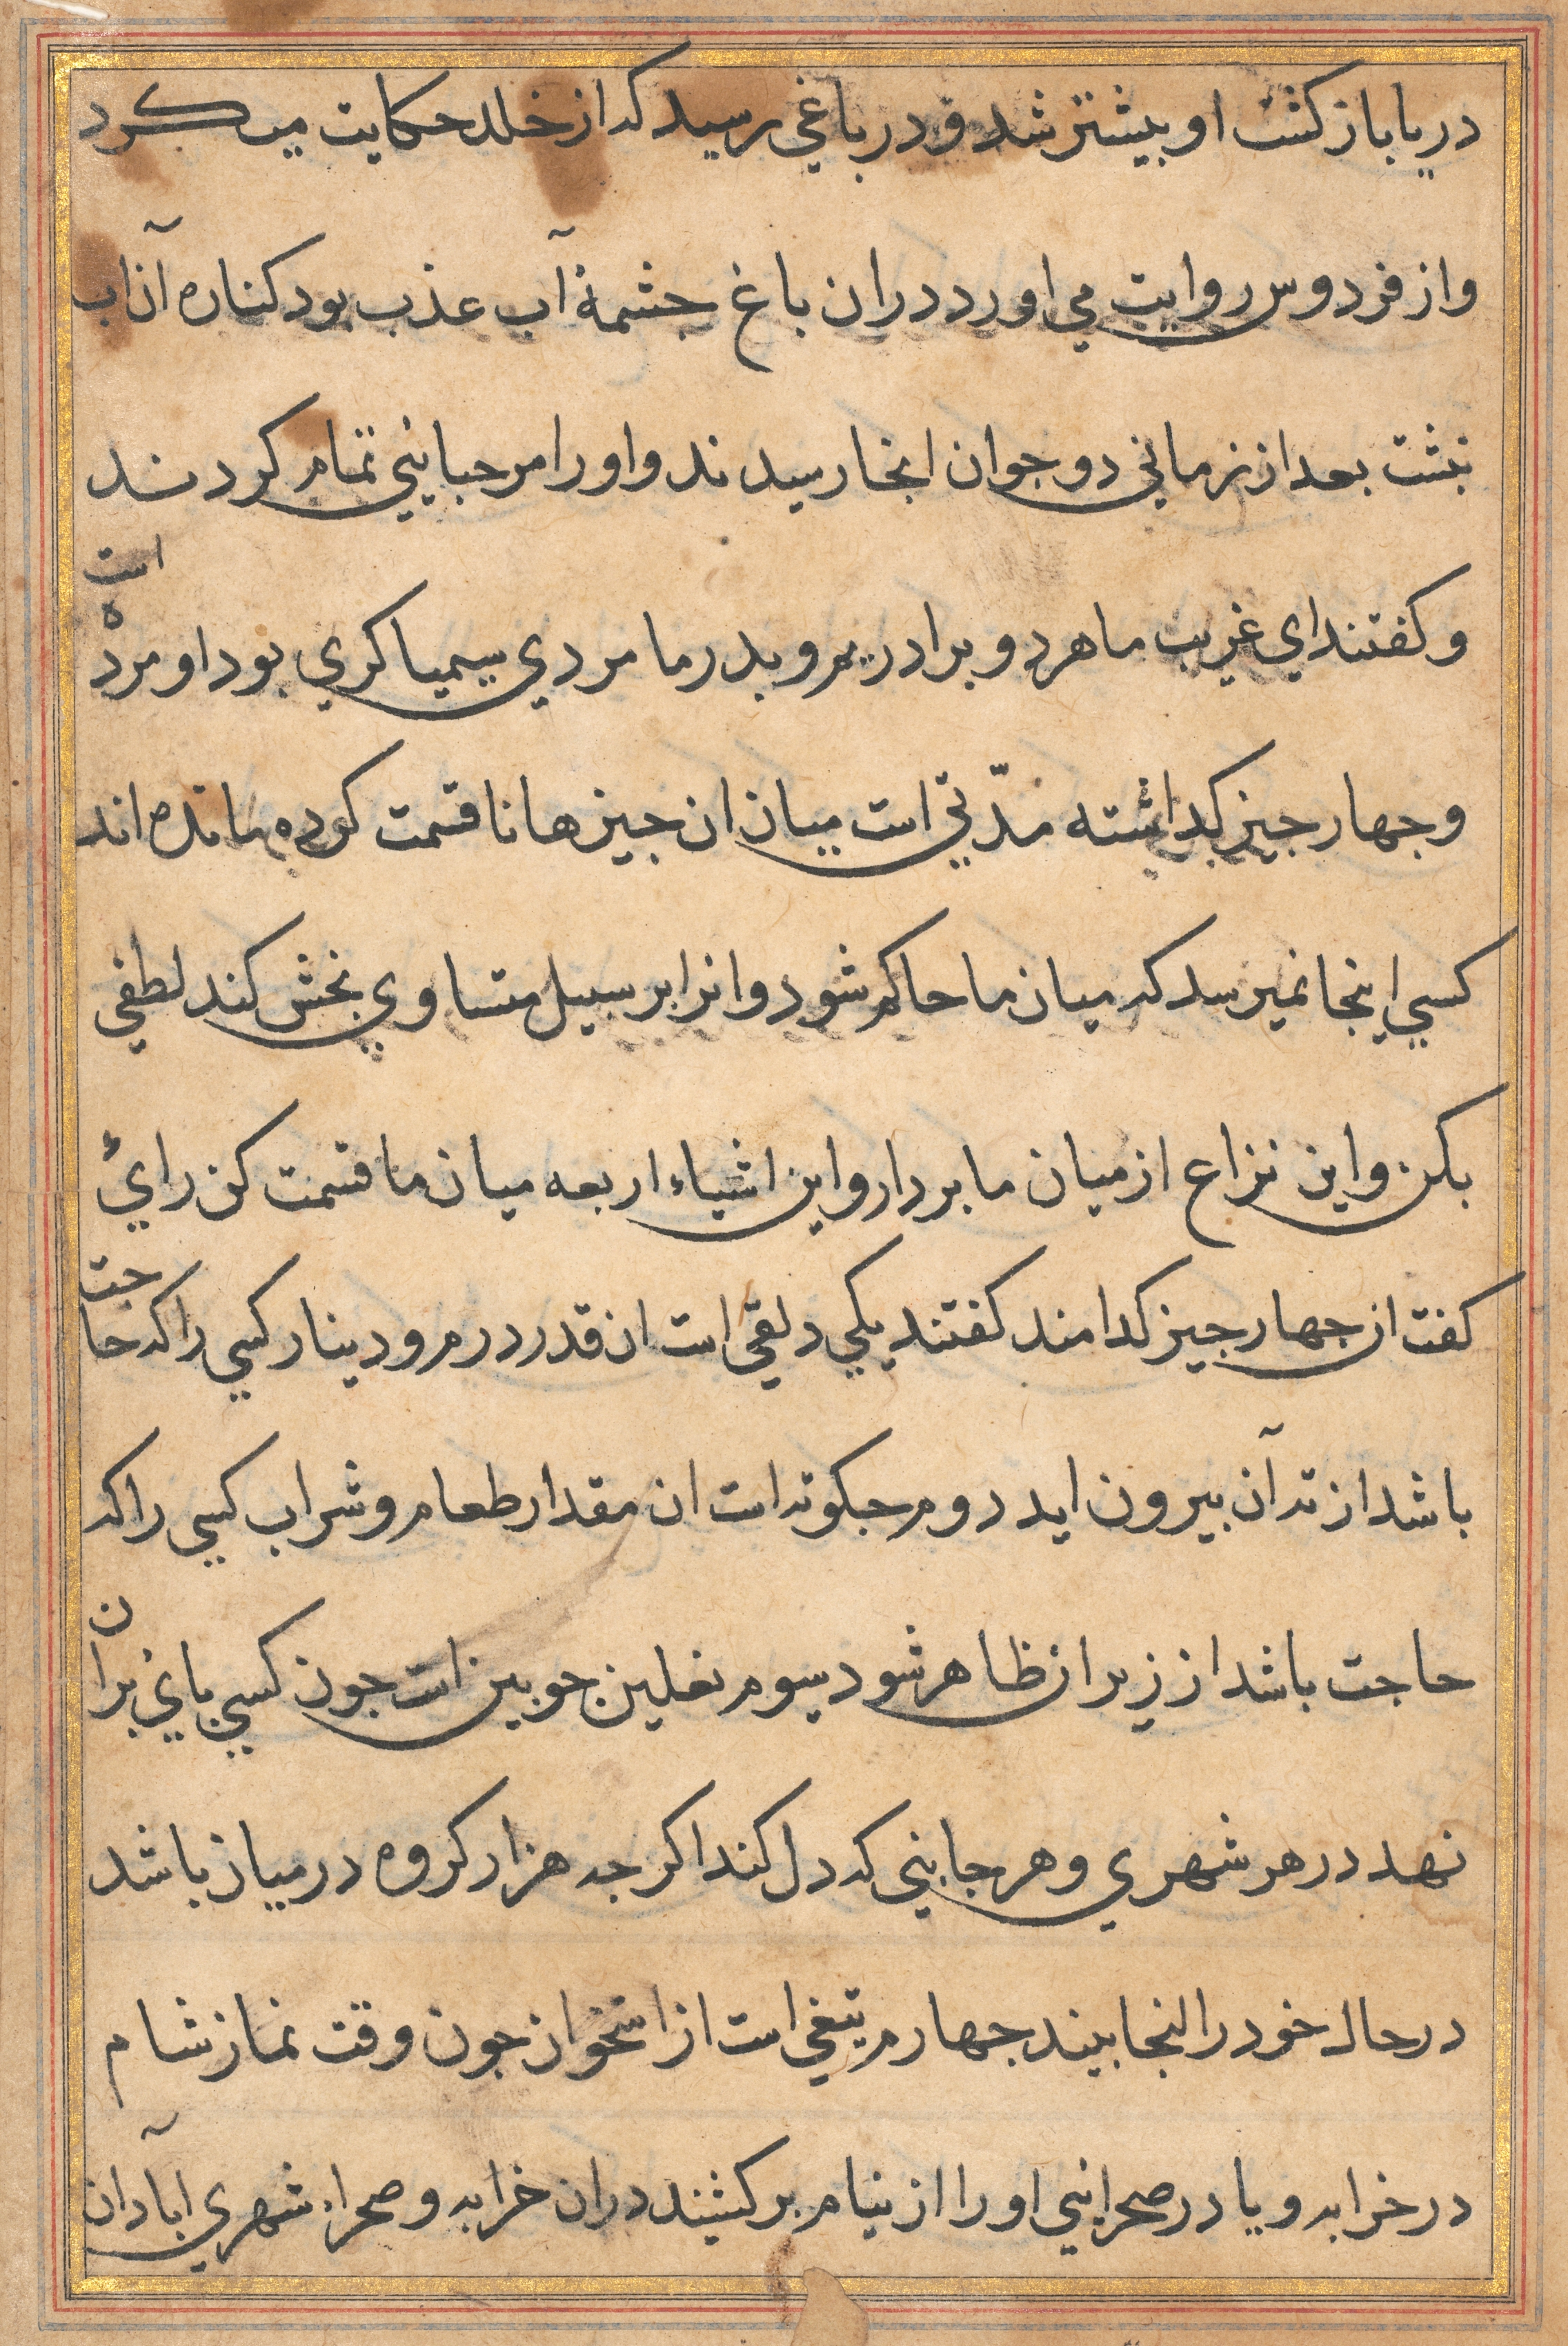 دریا باز کشت او بیشتر شد و در باغي رسید که از خلد حکایت می کرد
و از فردوس روایت می اورد دران باغ جشمهٔ آب عذب بود کناره آن آب
بنشت بعد از زماني دو جوان انجا رسیدند و او را مرحبایئي تمام کردند
و کفتند اي غریب ما هر دو برادریم و بدر ما مردي سیمیا کري بود او مرده است
و جهار جیز کداشته مدّتي است میان ان جیزها نا قسمت کرده مانده اند
کسي اینجا نمیرسد که میان ما حاکم شود و انرا بر سبیل متساوي بخش کند لطفي
بکن و این نزاع از میان ما بردار و این اشیاء اربعه میان ما قسمت کن رائ
کفت ان جهار جیز کدامند کفتند یکي دلقي است ان قدر درم و دینار کسي را که حاجت
باشد از ته آن بیرون اید دوم جکوته است ان مقدار طعام و شراب کسي را که
حاجت باشد از زیر ان ظاهر شود سیوم نعلین جوبین است جون کسي باي بران
نهد در هر شهري و هر جایئي که دل کند اکرجه هزار کروه درمیان باشد
در حال خود را انجا بیند جهارم تیغي است از استخوان جون وقت نماز شام
در خرابه و یا در صحرایئي او را از نیام بر کشند دران خرابه و صحرا شهري ابآدان